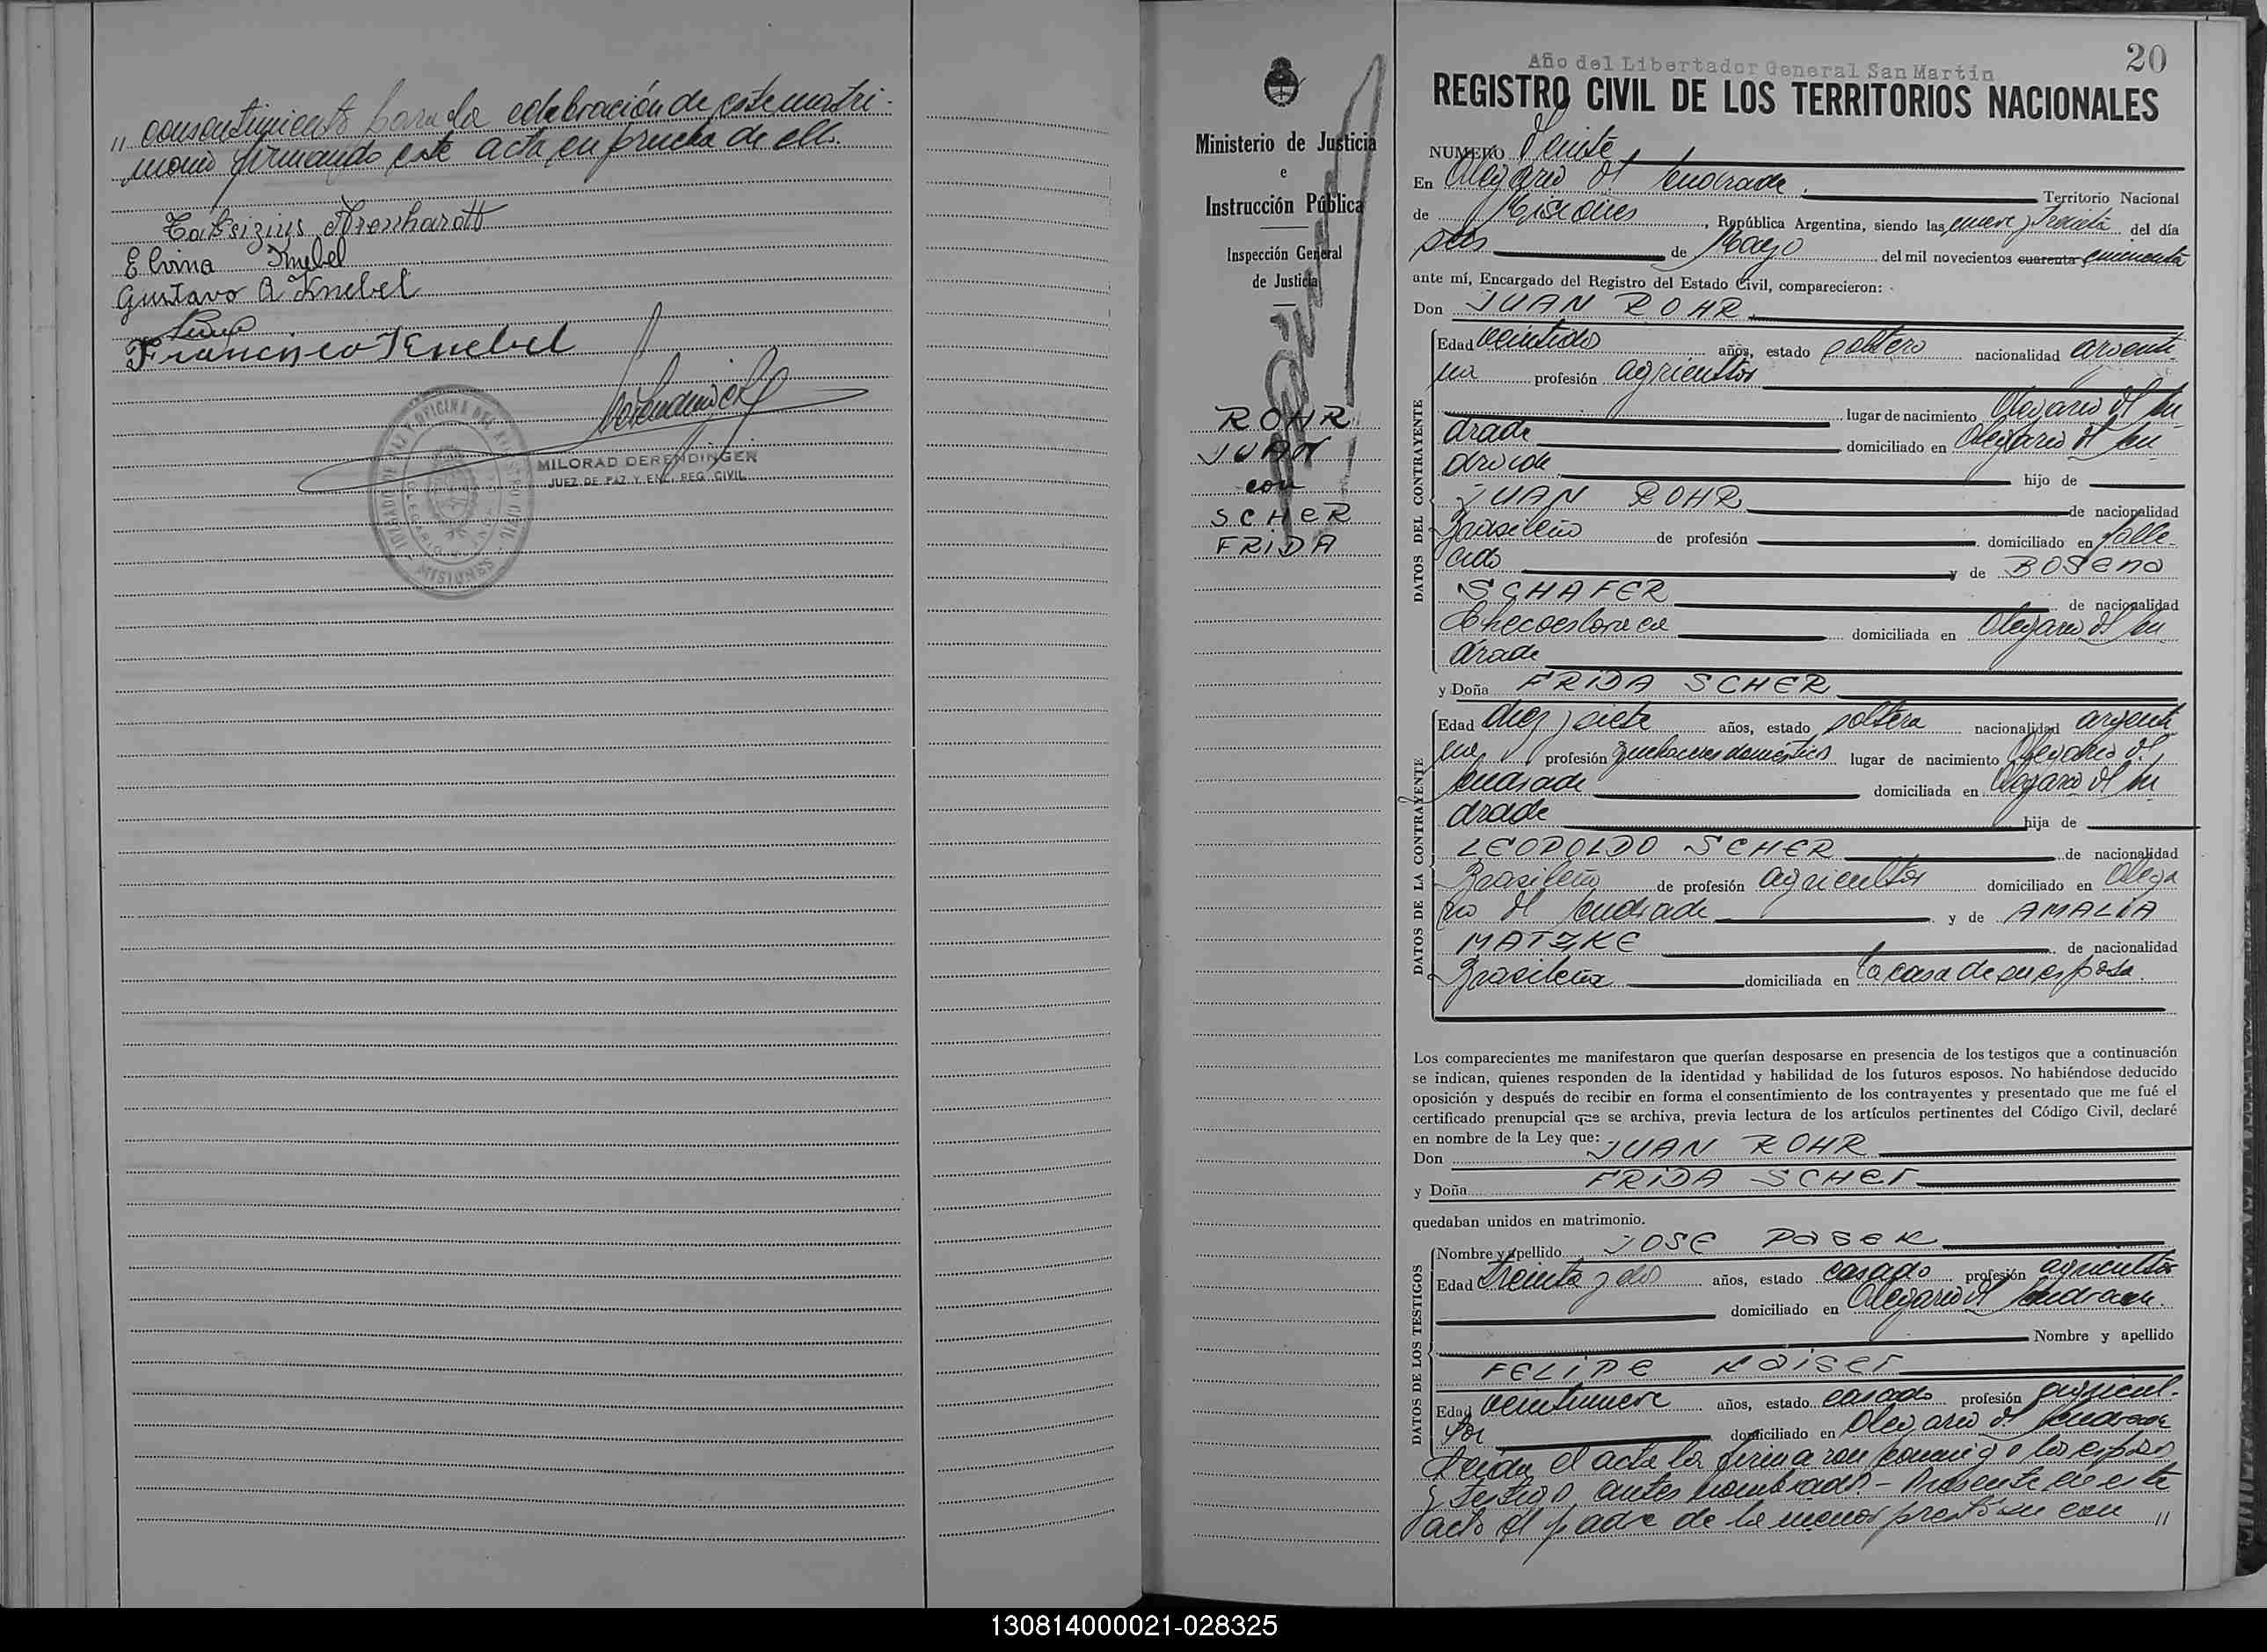 " consentimiento para la celebración de este matri-
monio firmando este acta en prueba de ello.
Elvina Knebel
Gustavo A Knebel
Francisco Knebel
OFICINA DEL REGISTRO CIVIL
MISIONES
MILORAD DERENDINGER
JUEZ DE PAZ Y ENC. REG. CIVIL
Ministerio de Justicia
e
Instrucción Pública
Inspección General
de Justicia
ROHR
JUAN
con
SCHER
FRIDA
20
Año del Libertador General San Martín
REGISTRO CIVIL DE LOS TERRITORIOS NACIONALES
NUMERO Veinte
En Olegario V. Andrade. Territorio Nacional
de Misiones, República Argentina, siendo las nueve y treinta del día
seis de Mayo del mil novecientos cuarenta y cincuenta
ante mí, Encargado del Registro del Estado Civil, comparecieron:
Don JUAN ROHR
DATOS DEL CONTRAYENTE
Edad veintidos años, estado soltero nacionalidad argenti-
na profesión agricultor
lugar de nacimiento Olegario V. An
drade domiciliado en Olegario V. An
drade hijo de
JUAN ROHR de nacionalidad
Brasileño de profesión domiciliado en falle-
cido y de
SCHAFER de nacionalidad
Checoeslovaca domiciliada en Olegario V. An
drade
y Doña FRIDA SCHER
DATOS DE LA CONTRAYENTE
Edad diez y siete años, estado soltera nacionalidad argenti
na profesión quehaceres domésticos lugar de nacimiento Olegario V.
Andrade domiciliada en Olegario V. An
drade hija de
LEOPOLDO SCHER de nacionalidad
Brasileño de profesión agricultor domiciliado en Olega
rio V. Andrade y de AMALIA
MATZKE de nacionalidad
Brasileña domiciliada en la casa de su esposo.
Los comparecientes me manifestaron que querían desposarse en presencia de los testigos que a continuación
se indican, quienes responden de la identidad y habilidad de los futuros esposos. No habiéndose deducido
oposición y después de recibir en forma el consentimiento de los contrayentes y presentado que me fué el
certificado prenupcial que se archiva, previa lectura de los artículos pertinentes del Código Civil, declaré
en nombre de la Ley que:
Don JUAN ROHR
y Doña FRIDA SCHEr
quedaban unidos en matrimonio.
DATOS DE LOS TESTIGOS
Nombre y apellido JOSE
Edad treinta y dos años, estado casado profesión agricultor
domiciliado en Olegario V. Andrade.
Nombre y apellido
FELIPE KaiSEr
Edad veintinueve años, estado casado profesión agricul-
tor domiciliado en Olegario V. Andrade
Leída el acta la firmaron conmigo los esposos
y testigos antes nombrados - Presente en este
acto el padre de la menor prestó su con "
130814000021-028325